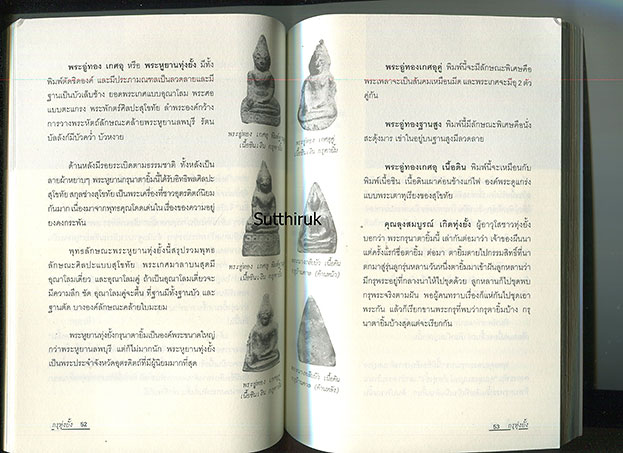 พระอู่ทอง เกศอุ หรือ พระหูยานทุ่งยั้ง มีทั้ง
พิมพ์ตัดชิดองค์ และมีประภามณฑลเป็นลวดลายและมี
ฐานเป็นบัวเล็บช้าง ยอดพระเกศแบบอุณาโลม พระศอ
แบบตะแกรง พระพักตร์ศิลปะสุโขทัย ลำพระองค์กว้าง
การวางพระหัตถ์ลักษณะคล้ายพระหูยานลพบุรี รัตน
บัลลังก์มีบัวคว่ำ บัวหงาย
ด้านหลังมีรอยระเบิดตามธรรมชาติ ทั้งหลังเป็น
ลายผ้าหยาบๆ พระหูยานกรุนาตายิ้มนี้ได้รับอิทธิพลศิลปะ
สุโขทัย สกุลช่างสุโขทัย เป็นพระเครื่องที่ชาวอุตรดิตถ์นิยม
กันมาก เนื่องมาจากพุทธคุณโดดเด่นในเรื่องของความอยู่
ยงคงกระพัน
พุทธลักษณะพระหูยานทุ่งยั้งนี้สรุปรวมพุทธ
ลักษณะศิลปะแบบสุโขทัย พระเกศมาลาบนสุดมี
อุณาโลมเดี่ยว และอุณาโลมคู่ ถ้าเป็นอุณาโลมเดี่ยวจะ
มีความลึก ชัด อุณาโลมคู่จะตื้น ที่ฐานมีทั้งฐานบัว และ
ฐานตัด บางองค์ลักษณะคล้ายใบมะยม
พระหูยานทุ่งยั้งกรุนาตายิ้มเป็นองค์พระขนาดใหญ่
กว่าพระหูยานลพบุรี แต่ก็ไม่มากนัก พระหูยานทุ่งยั้ง
เป็นพระประจำจังหวัดอุตรดิตถ์ที่มีผู้นิยมมากที่สุด
กรุทุ่งยั้ง 52
พระอู่ทอง เกศอุ
Sutthiruk
พระอู่ทองเกศอุคู่ พิมพ์นี้จะมีลักษณะพิเศษคือ
พระเพลาจะเป็นสันคมเหมือนมีด และพระเกศจะมีอุ 2 ตัว
คู่กัน
พระอู่ทองฐานสูง พิมพ์นี้มีลักษณะพิเศษคือนั่ง
สะดุ้งมาร เข่าในอยู่บนฐานสูงมีลวดลาย
พระอู่ทองเกศอุ เนื้อดิน พิมพ์นี้จะเหมือนกับ
พิมพ์เนื้อชิน เนื้อดินเผาค่อนข้างแก่ไฟ องค์พระดูแกร่ง
แบบพระเตาทุเรียงของสุโขทัย
คุณลุงสมบูรณ์ เกิดทุ่งยั้ง ผู้อาวุโสชาวทุ่งยั้ง
บอกว่า พระกรุนาตายิ้มนี้ เล่ากันต่อมาว่า เจ้าของผืนนา
แต่ครั้งแรกชื่อตายิ้ม ต่อมา ตายิ้มตายไปกรรมสิทธิ์ที่นา
ตกมาสู่รุ่นลูกรุ่นหลานวันหนึ่งตายิ้มมาเข้าฝันลูกหลานว่า
มีกรุพระอยู่ที่กลางนาให้ไปขุดด้วย ลูกหลานก็ไปขุดพบ
กรุพระจริงตามฝัน พอผู้คนทราบเรื่องก็แห่กันไปขุดเอา
พระกัน แล้วก็เรียกขานพระกรุที่พบว่ากรุตายิ้มบ้าง กรุ
นาตายิ้มบ้างสุดแต่จะเรียกกัน
53 กรุทุ่งยั้ง